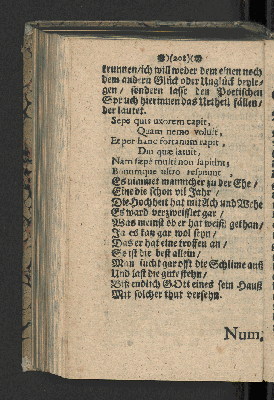 )(201)(
trunnen/ ich will weder dem einen noch
dem andern Glück oder Unglück beyle-
gen/ sondern lasse den Poetischen
Spruch hierinnen das Urtheil fällen/
der lautet.
Sæpe quis uxorem capit,
Quam nemo voluit,
Et per hanc fortunam rapit,
Diu quæ latuit,
Nam sæpè multi non sapiunt,
Bonumque ultro respuunt,
Es nimmet mannicher zu der Ehe/
Eine die schon viel Jahr/
Die Hochheit hat mit Ach und Wehe
Es ward verzweiflet gar/
Was meinst ob er hat weißl. gethan/
Ja es kan gar wol seyn/
Das er hat eine troffen an/
So ist die best allein/
Man sucht gar offt die Schlime auß
Und last die gute stehn/
Biß endlich GOtt eines sein Hauß
Mit solcher thut versehn.
Num.